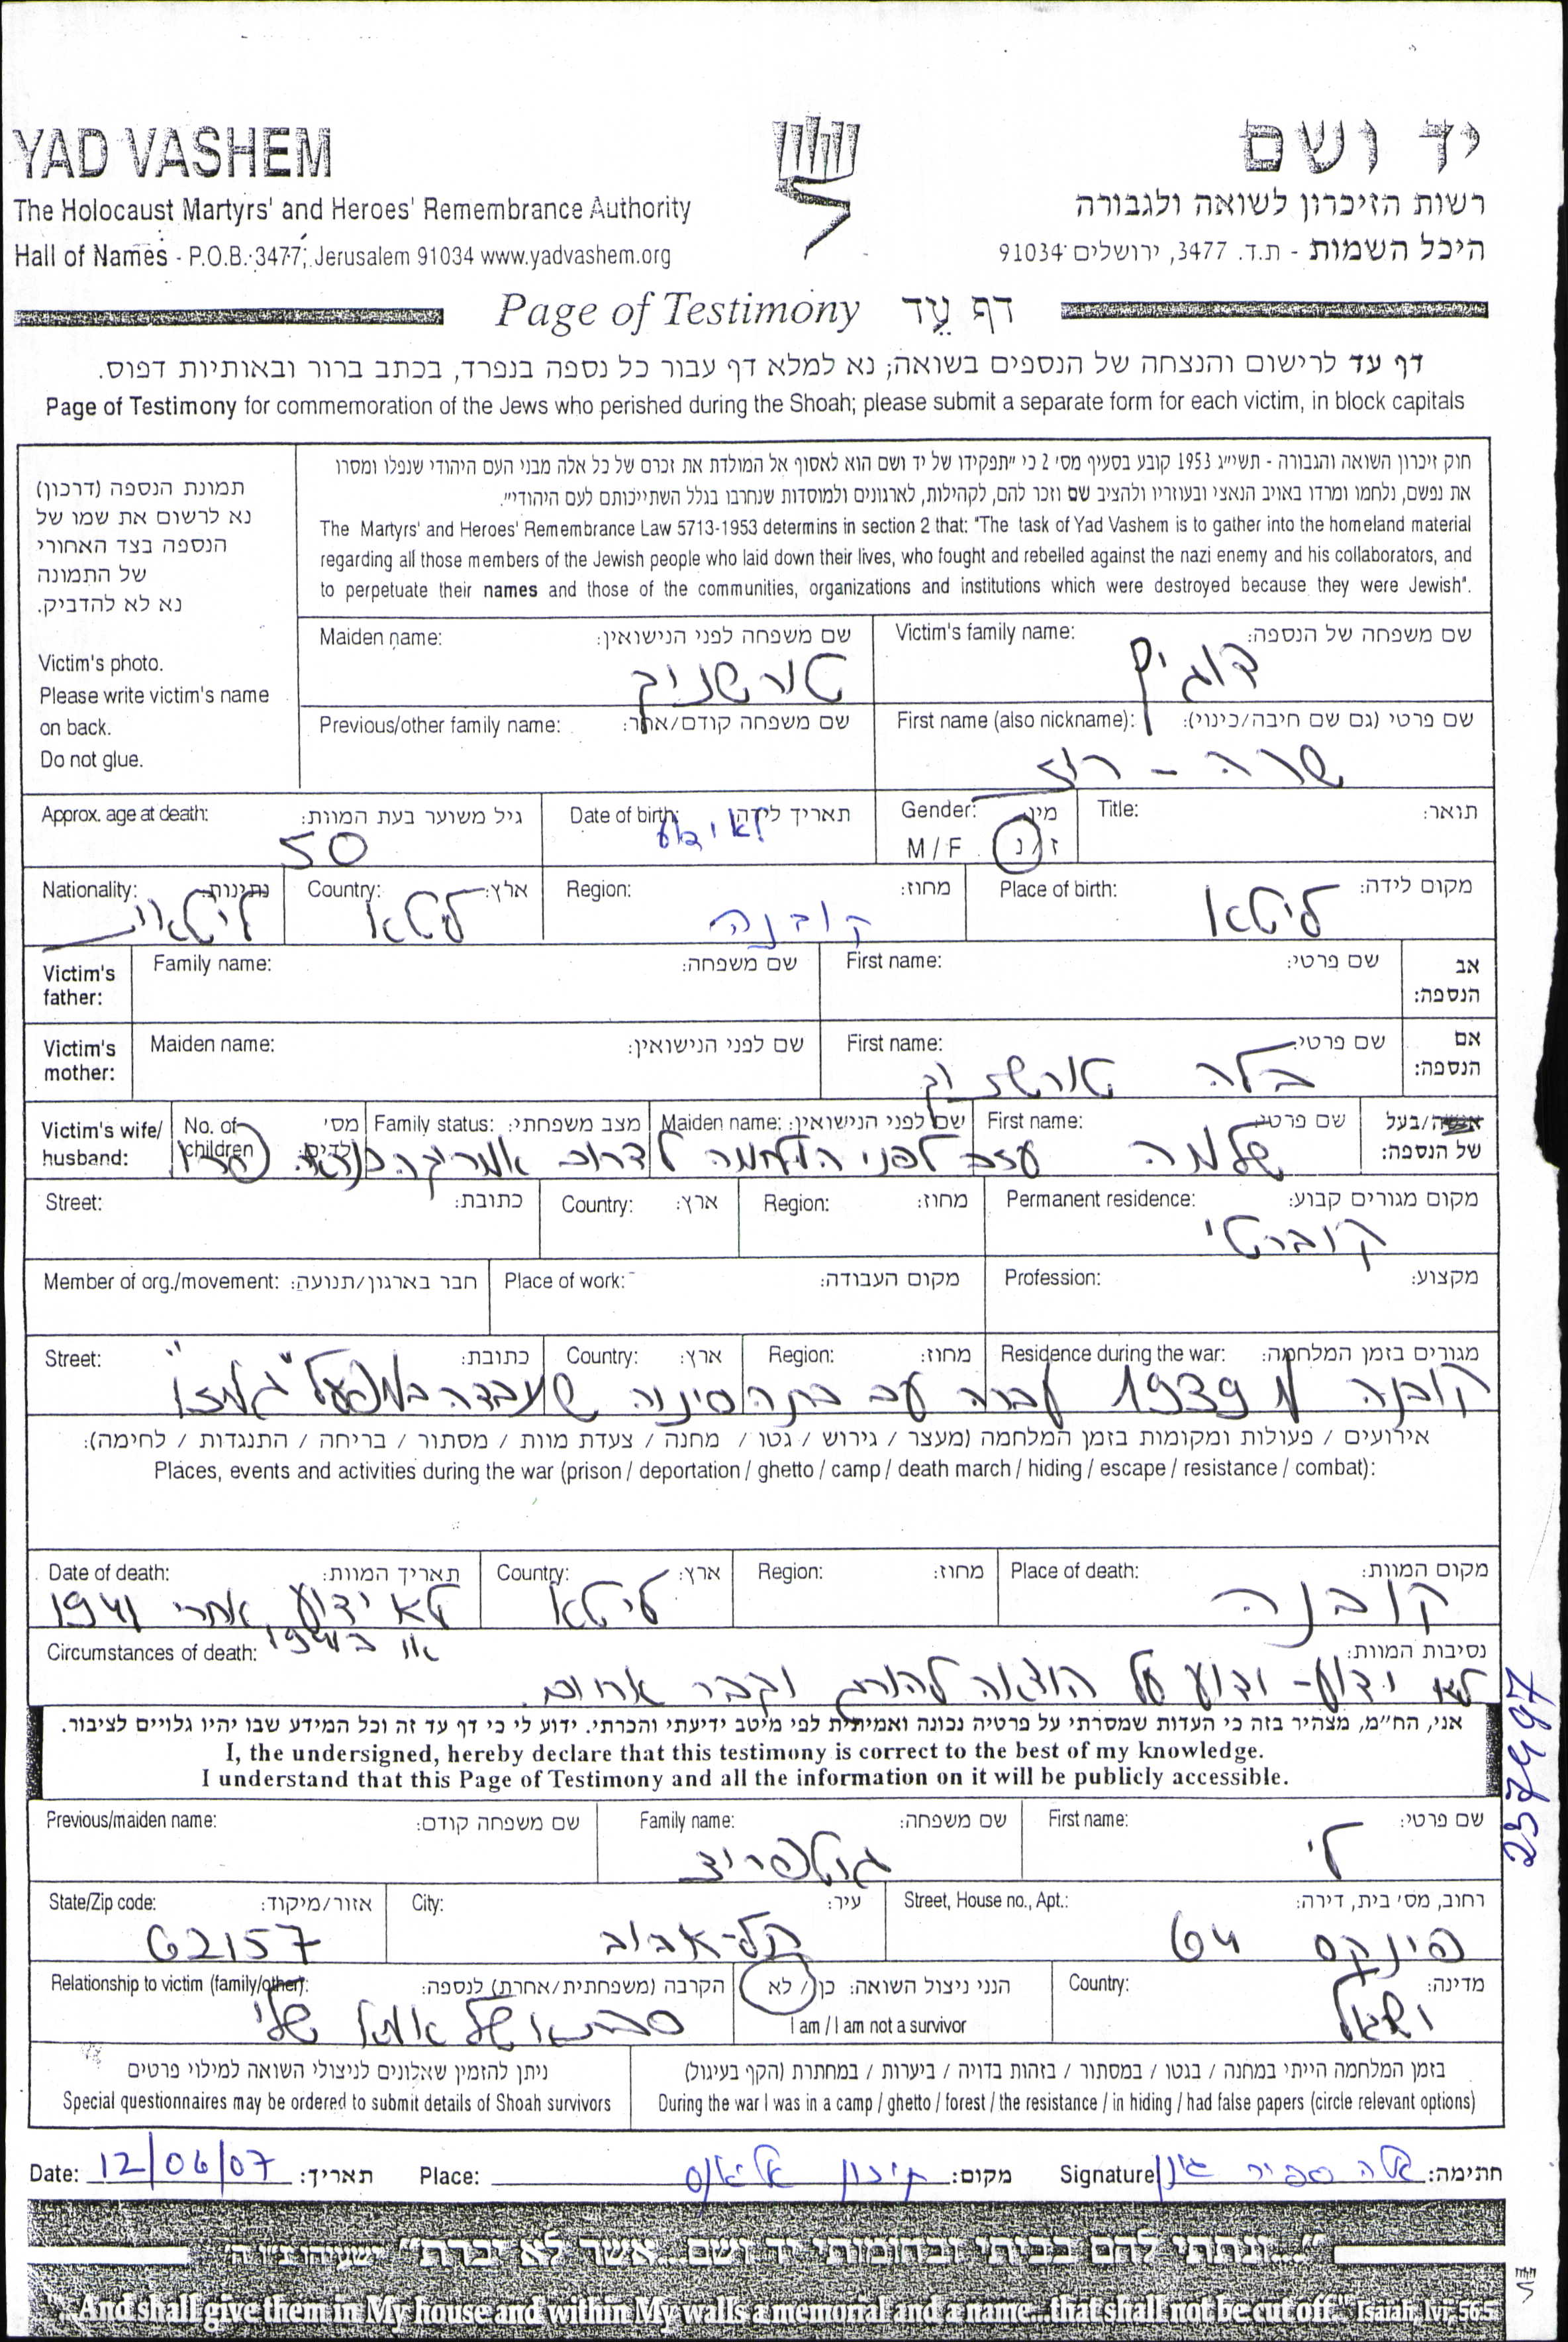 YAD VASHEM
יד ושם
The Holocaust Martyrs' and Heroes' Remembrance Authority
רשות הזיכרון לשואה ולגבורה
Hall of Names - P.O.B. 3477, Jerusalem 91034 www.yadvashem.org
היכל השמות - ת.ד. 3477, ירושלים 91034
Page of Testimony דף עֵד
דף עד לרישום והנצחה של הנספים בשואה; נא למלא דף עבור כל נספה בנפרד, בכתב ברור ובאותיות דפוס.
Page of Testimony for commemoration of the Jews who perished during the Shoah; please submit a separate form for each victim, in block capitals
תמונת הנספה (דרכון)
נא לרשום את שמו של
הנספה בצד האחורי
של התמונה
נא לא להדביק.
Victim's photo.
Please write victim's name
on back.
Do not glue.
חוק זיכרון השואה והגבורה - תשי״ג 1953 קובע בסעיף מס׳ 2 כי ״תפקידו של יד ושם הוא לאסוף אל המולדת את זכרם של כל אלה מבני העם היהודי שנפלו ומסרו
את נפשם, נלחמו ומרדו באויב הנאצי ובעוזריו ולהציב שם וזכר להם, לקהילות, לארגונים ולמוסדות שנחרבו בגלל השתייכותם לעם היהודי״.
The Martyrs' and Heroes' Remembrance Law 5713-1953 determins in section 2 that: "The task of Yad Vashem is to gather into the homeland material
regarding all those members of the Jewish people who laid down their lives, who fought and rebelled against the nazi enemy and his collaborators, and
to perpetuate their names and those of the communities, organizations and institutions which were destroyed because they were Jewish".
Victim's family name: שם משפחה של הנספה:
Maiden name: שם משפחה לפני הנישואין:
טורשניק
First name (also nickname): שם פרטי (גם שם חיבה/כינוי):
שרה -
Previous/other family name: שם משפחה קודם/אחר:
Title: תואר:
Gender: מין:
M / F ז / נ
Date of birth: תאריך לידה:
לא ידוע
Approx. age at death: גיל משוער בעת המוות:
50
Place of birth: מקום לידה:
ליטא
Region: מחוז:
קובנה
Country: ארץ:
ליטא
Nationality: נתינות:
ליטאית
Victim's father: אב הנספה:
First name: שם פרטי:
Family name: שם משפחה:
Victim's mother: אם הנספה:
First name: שם פרטי:
בלה טורשניק
Maiden name: שם לפני הנישואין:
Victim's wife/ husband: אשה/בעל של הנספה:
First name: שם פרטי:
Maiden name: שם לפני הנישואין:
Family status: מצב משפחתי:
No. of children מס׳ ילדים
שלמה עזב לפני המלחמה לדרום אמריקה
Permanent residence: מקום מגורים קבוע:
Region: מחוז:
Country: ארץ:
Street: כתובת:
Profession: מקצוע:
Place of work: מקום העבודה:
Member of org./movement: חבר בארגון/תנועה:
Residence during the war: מגורים בזמן המלחמה:
Region: מחוז:
Country: ארץ:
Street: כתובת:
קובנה 1939 עברה עם בתה שעבדה במפעל
אירועים / פעולות ומקומות בזמן המלחמה (מעצר / גירוש / גטו / מחנה / צעדת מוות / מסתור / בריחה / התנגדות / לחימה):
Places, events and activities during the war (prison / deportation / ghetto / camp / death march / hiding / escape / resistance / combat):
Place of death: מקום המוות:
קובנה
Region: מחוז:
Country: ארץ:
ליטא
Date of death: תאריך המוות:
לא ידוע אחרי 1941
או ב 1941
Circumstances of death: נסיבות המוות:
לא ידוע - ידוע על הוצאה להורג וקבר אחים.
אני, הח״מ, מצהיר בזה כי העדות שמסרתי על פרטיה נכונה ואמיתית לפי מיטב ידיעתי והכרתי. ידוע לי כי דף עד זה וכל המידע שבו יהיו גלויים לציבור.
I, the undersigned, hereby declare that this testimony is correct to the best of my knowledge.
I understand that this Page of Testimony and all the information on it will be publicly accessible.
237497
First name: שם פרטי:
לי
Family name: שם משפחה:
גוטפריד
Previous/maiden name: שם משפחה קודם:
Street, House no., Apt.: רחוב, מס׳ בית, דירה:
פינקס 64
City: עיר:
תל-אביב
State/Zip code: אזור/מיקוד:
62157
Country: מדינה:
ישראל
הנני ניצול השואה: כן / לא
I am / I am not a survivor
Relationship to victim (family/other): הקרבה (משפחתית/אחרת) לנספה:
סבתא של אמא שלי
בזמן המלחמה הייתי במחנה / בגטו / במסתור / בזהות בדויה / ביערות / במחתרת (הקף בעיגול)
During the war I was in a camp / ghetto / forest / the resistance / in hiding / had false papers (circle relevant options)
ניתן להזמין שאלונים לניצולי השואה למילוי פרטים
Special questionnaires may be ordered to submit details of Shoah survivors
Date: 12/06/07 תאריך: Place: תיכון אליאנס מקום: Signature חתימה:
״...ונתתי להם בביתי ובחומותי יד ושם...אשר לא יכרת״ ישעיהו נ״ו ה׳
"...And shall give them in My house and within My walls a memorial and a name...that shall not be cut off." Isaiah, lvi, 56:5